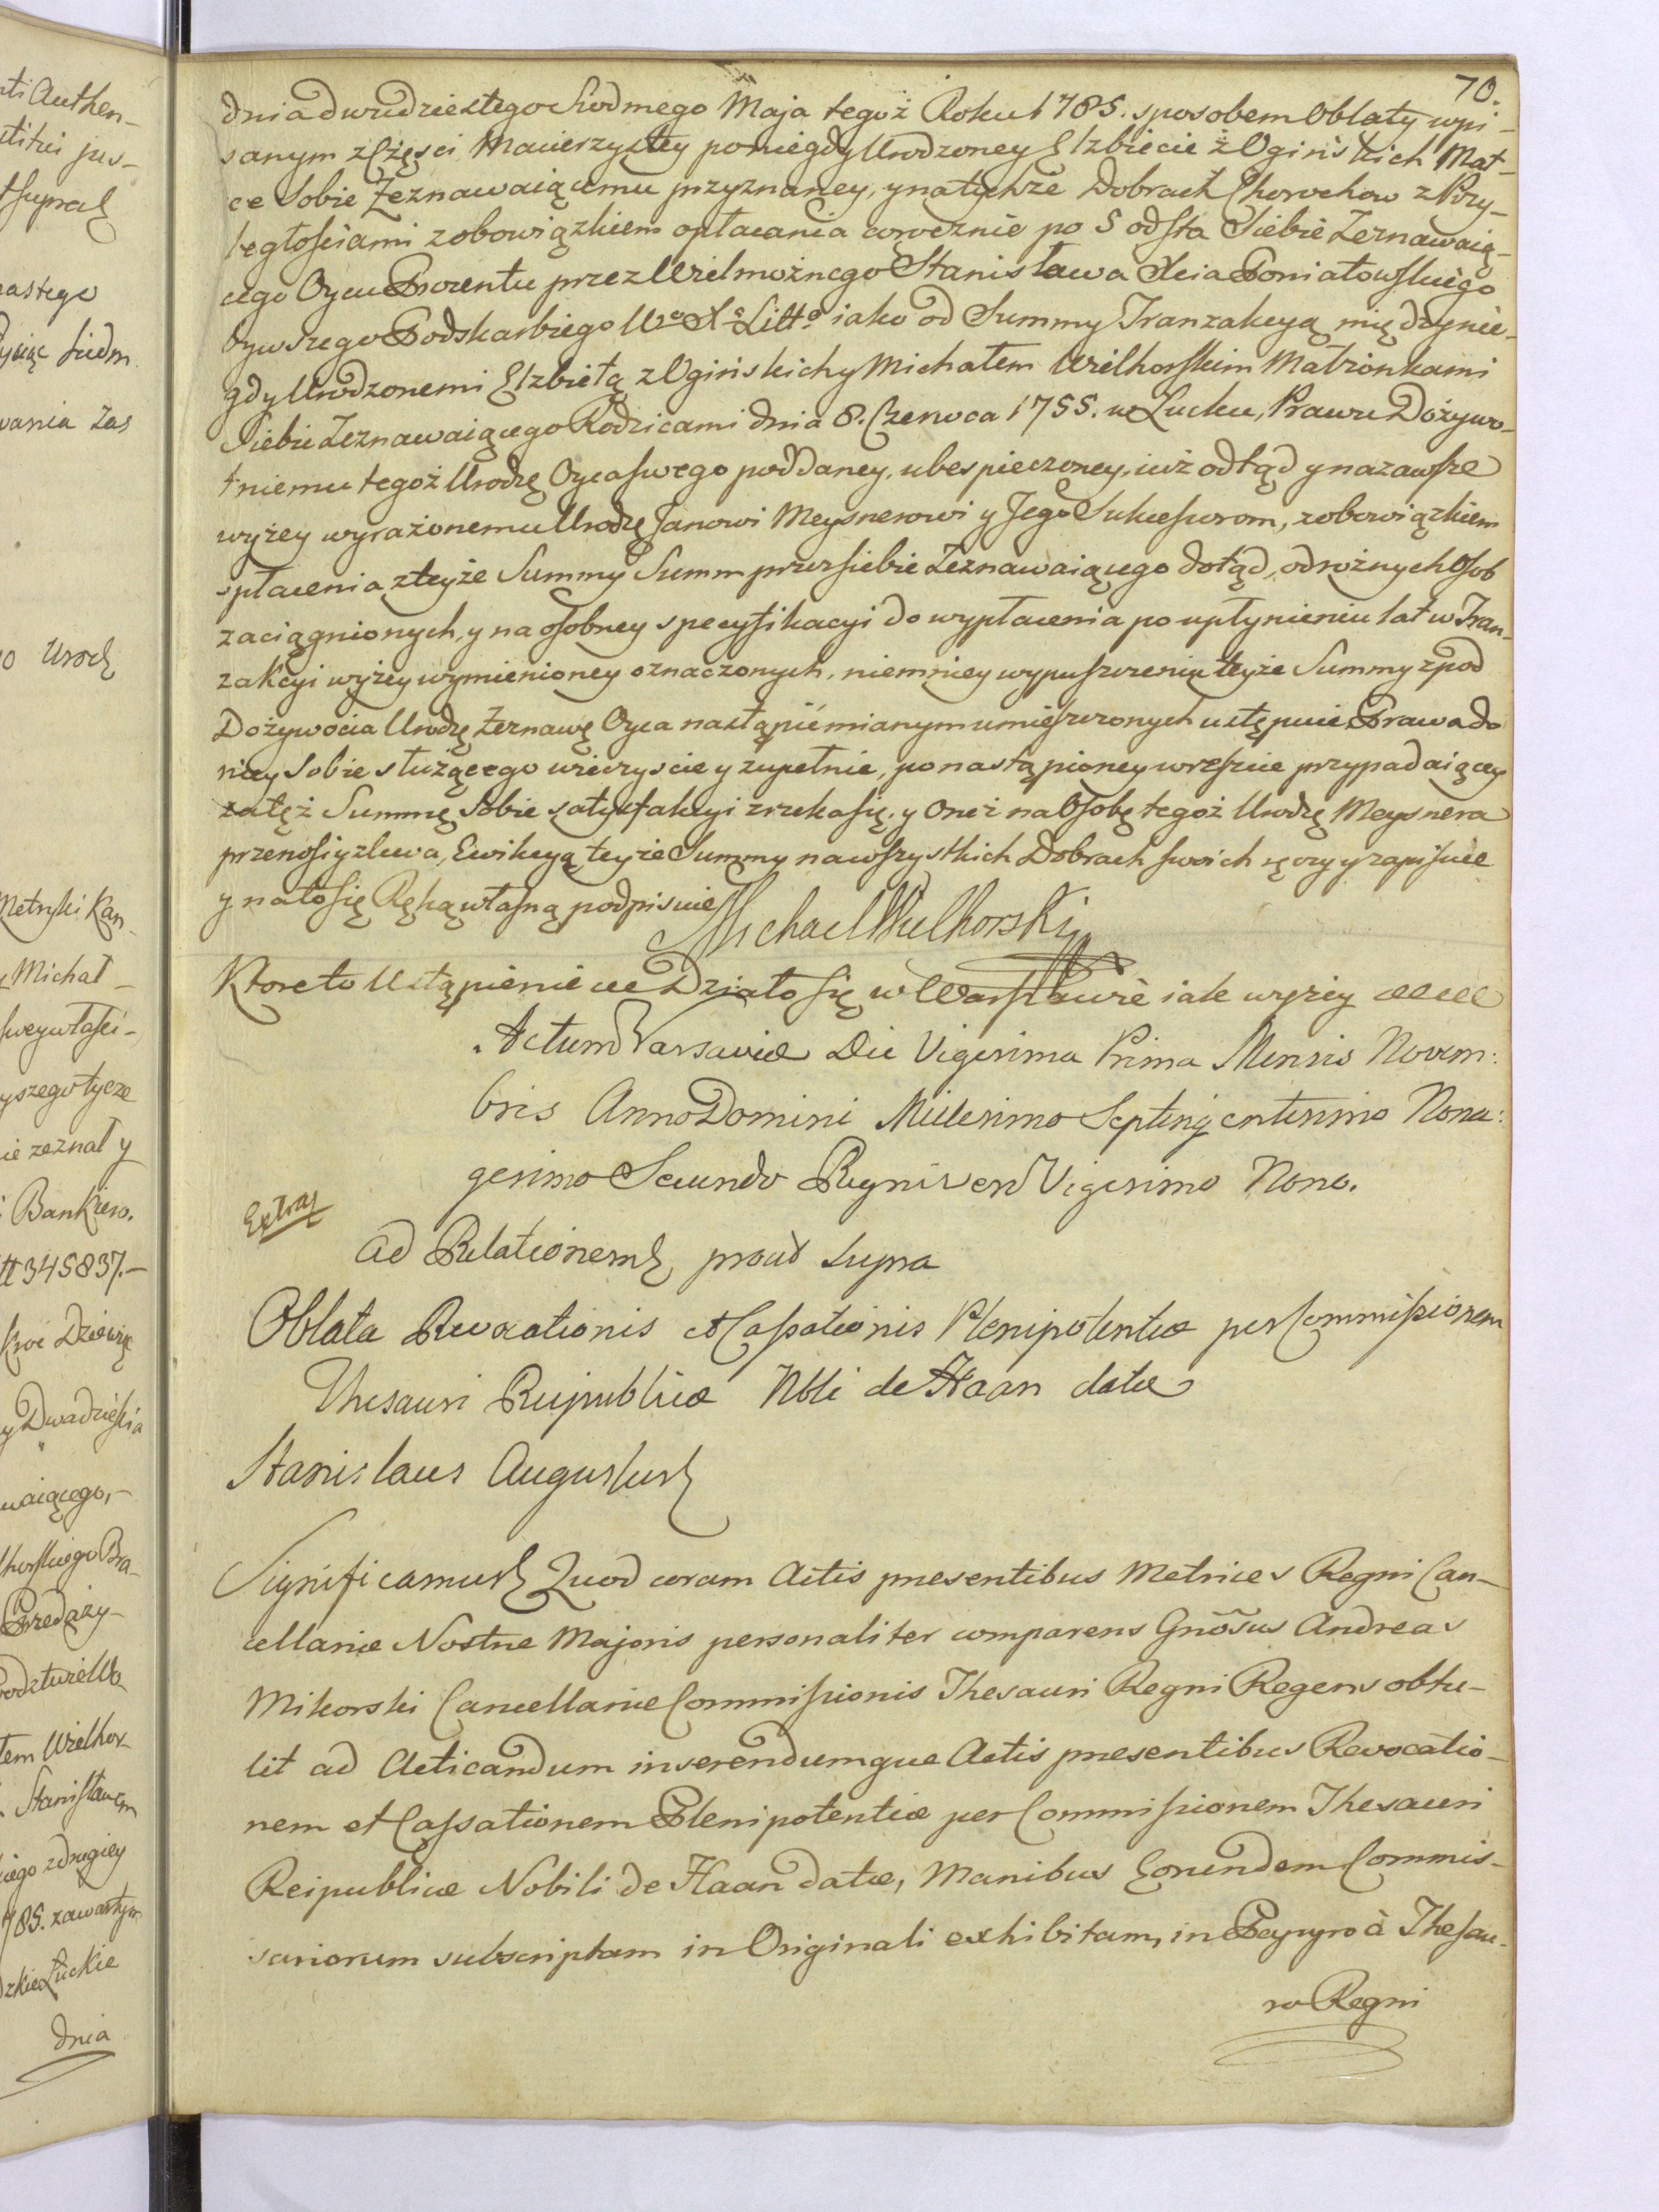 70.
dnia dwudziestego Siodmego Maja tegoż Roku 1785. sposobem Oblaty wpi-
sanym z Częsci Macierzystey poniegdy Urodzoney Elzbiecie z Ogińskich Mat-
ce Sobie Zeznawaiącemu przyznaney, y na tychże Dobrach Chorochow z Przy-
ległościami z obowiązkiem opłacania corocznie po 5 od sta Siebie Zeznawaią-
cego Oycu Procentu przez Wielmożnego Stanisława Xcia Poniatowskiego
bywszego Podskarbiego Wo Xo Litto iako od Summy Tranzakcyą między nie-
gdy Urodzonemi Elzbietą z Ogińskich y Michałem Wielhorskim Małżonkami
Siebie Zeznawaiącego Rodzicami dnia 8. Czerwca 1755. w Łucku, Prawu Dożywo-
tniemu tegoż Urodzę Oyca swego poddaney, ubespieczoney, iuż odtąd y nazawsze
wyżey wyrażonemu Urodzę Janowi Meysnerowi y Jego Sukcessorom, z obowiązkiem
spłacenia z teyże Summy Summ przez siebie Zeznawaiącego dotąd, od rożnych Osob
zaciągnionych, y na osobney specyfikacyi do wypłacenia po upłynieniu lat w Tran-
zakcyi wyżey wymienioney oznaczonych, niemniey wypuszczeniu teyże Summy z pod
Dożywocia Urodzę Zeznawę Oyca nastąpić mianym umieszczonych ustępuie Prawa do
niey Sobie służącego wieczyscie y zupełnie, po nastąpioney wreszcie przypadaiącey
za tęż Summę Sobie satysfakcyi zrzeka się. y Oneż na Osobę tegoż Urodzę Meysnera
przenosi y zlewa, Ewikcyą teyże Summy na wszystkich Dobrach swoich ręczy y zapisuie
y na to się Ręką własną podpisuie
Michael Wielhorski
Ktore to Ustąpienie Działo się w Warszawie iak wyżey
Actum Varsaviæ Die Vigesima Prima Mensis Novem:
bris Anno Domini Millesimo Septingentesimo Nona:
gesimo Secundo Regni vero Vigesimo Nono.
Extraz
Ad Relationem prout Supra
Oblata Revocationis et Cassationis Plenipotentiæ per Commissionem
Thesauri Reipublicæ Nbli de Haan datæ
Stanislaus Augustus
Significamus Quod coram Actis præsentibus Metrices Regni Can-
cellariæ Nostræ Majoris personaliter comparens Gnosus Andreas
Mikorski Cancellariæ Commissionis Thesauri Regni Regens obtu-
lit ad Acticandum inserendumque Actis præsentibus Revocatio-
nem et Cassationem Plenipotentiæ per Commissionem Thesauri
Reipublicæ Nobili de Haan datæ, Manibus Eorundem Commis-
sariorum subscriptam in Originali exhibitam, in Papyro à Thesau-
ro Regni